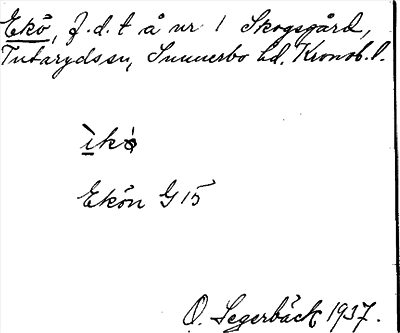 Ekö, f.d. t å nr 1 Skogsgård,
Tutarydssn, Sunnerbo hd, Kronob. l.
Ekön G 15
O. Segerbäck 1937.